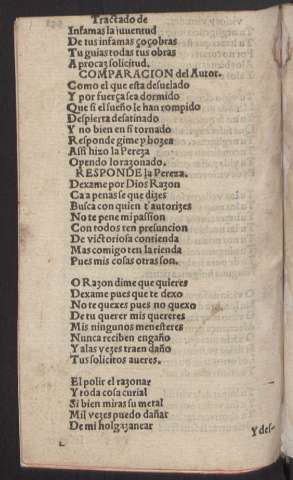 Tractado de
Infamas la juuentud
De tus infamas çoçobras
Tu guias todas tus obras
A procaz solicitud.
COMPARACION del Autor.
Como el que esta desuelado
Y por fuerça sea dormido
Que si el sueño le han rompido
Despierta desatinado
Y no bien en si tornado
Responde gime y bozea
Assi hizo la Pereza
Oyendo lo razonado.
RESPONDE la Pereza.
Dexame por Dios Razon
Ca a penas se que dizes
Busca con quien t'autorizes
No te pene mi passion
Con todos ten presuncion
De victoriosa contienda
Mas comigo ten la rienda
Pues mis cosas otras son.
O Razon dime que quieres
Dexame pues que te dexo
No te quexes pues no quexo
De tu querer mis quereres
Mis ningunos menesteres
Nunca reciben engaño
Y a las vezes traen daño
Tus solicitos aueres.
El polir el razonar
Y toda cosa curial
Si bien miras su metal
Mil vezes puedo dañar
De mi holgazanear
Y des-